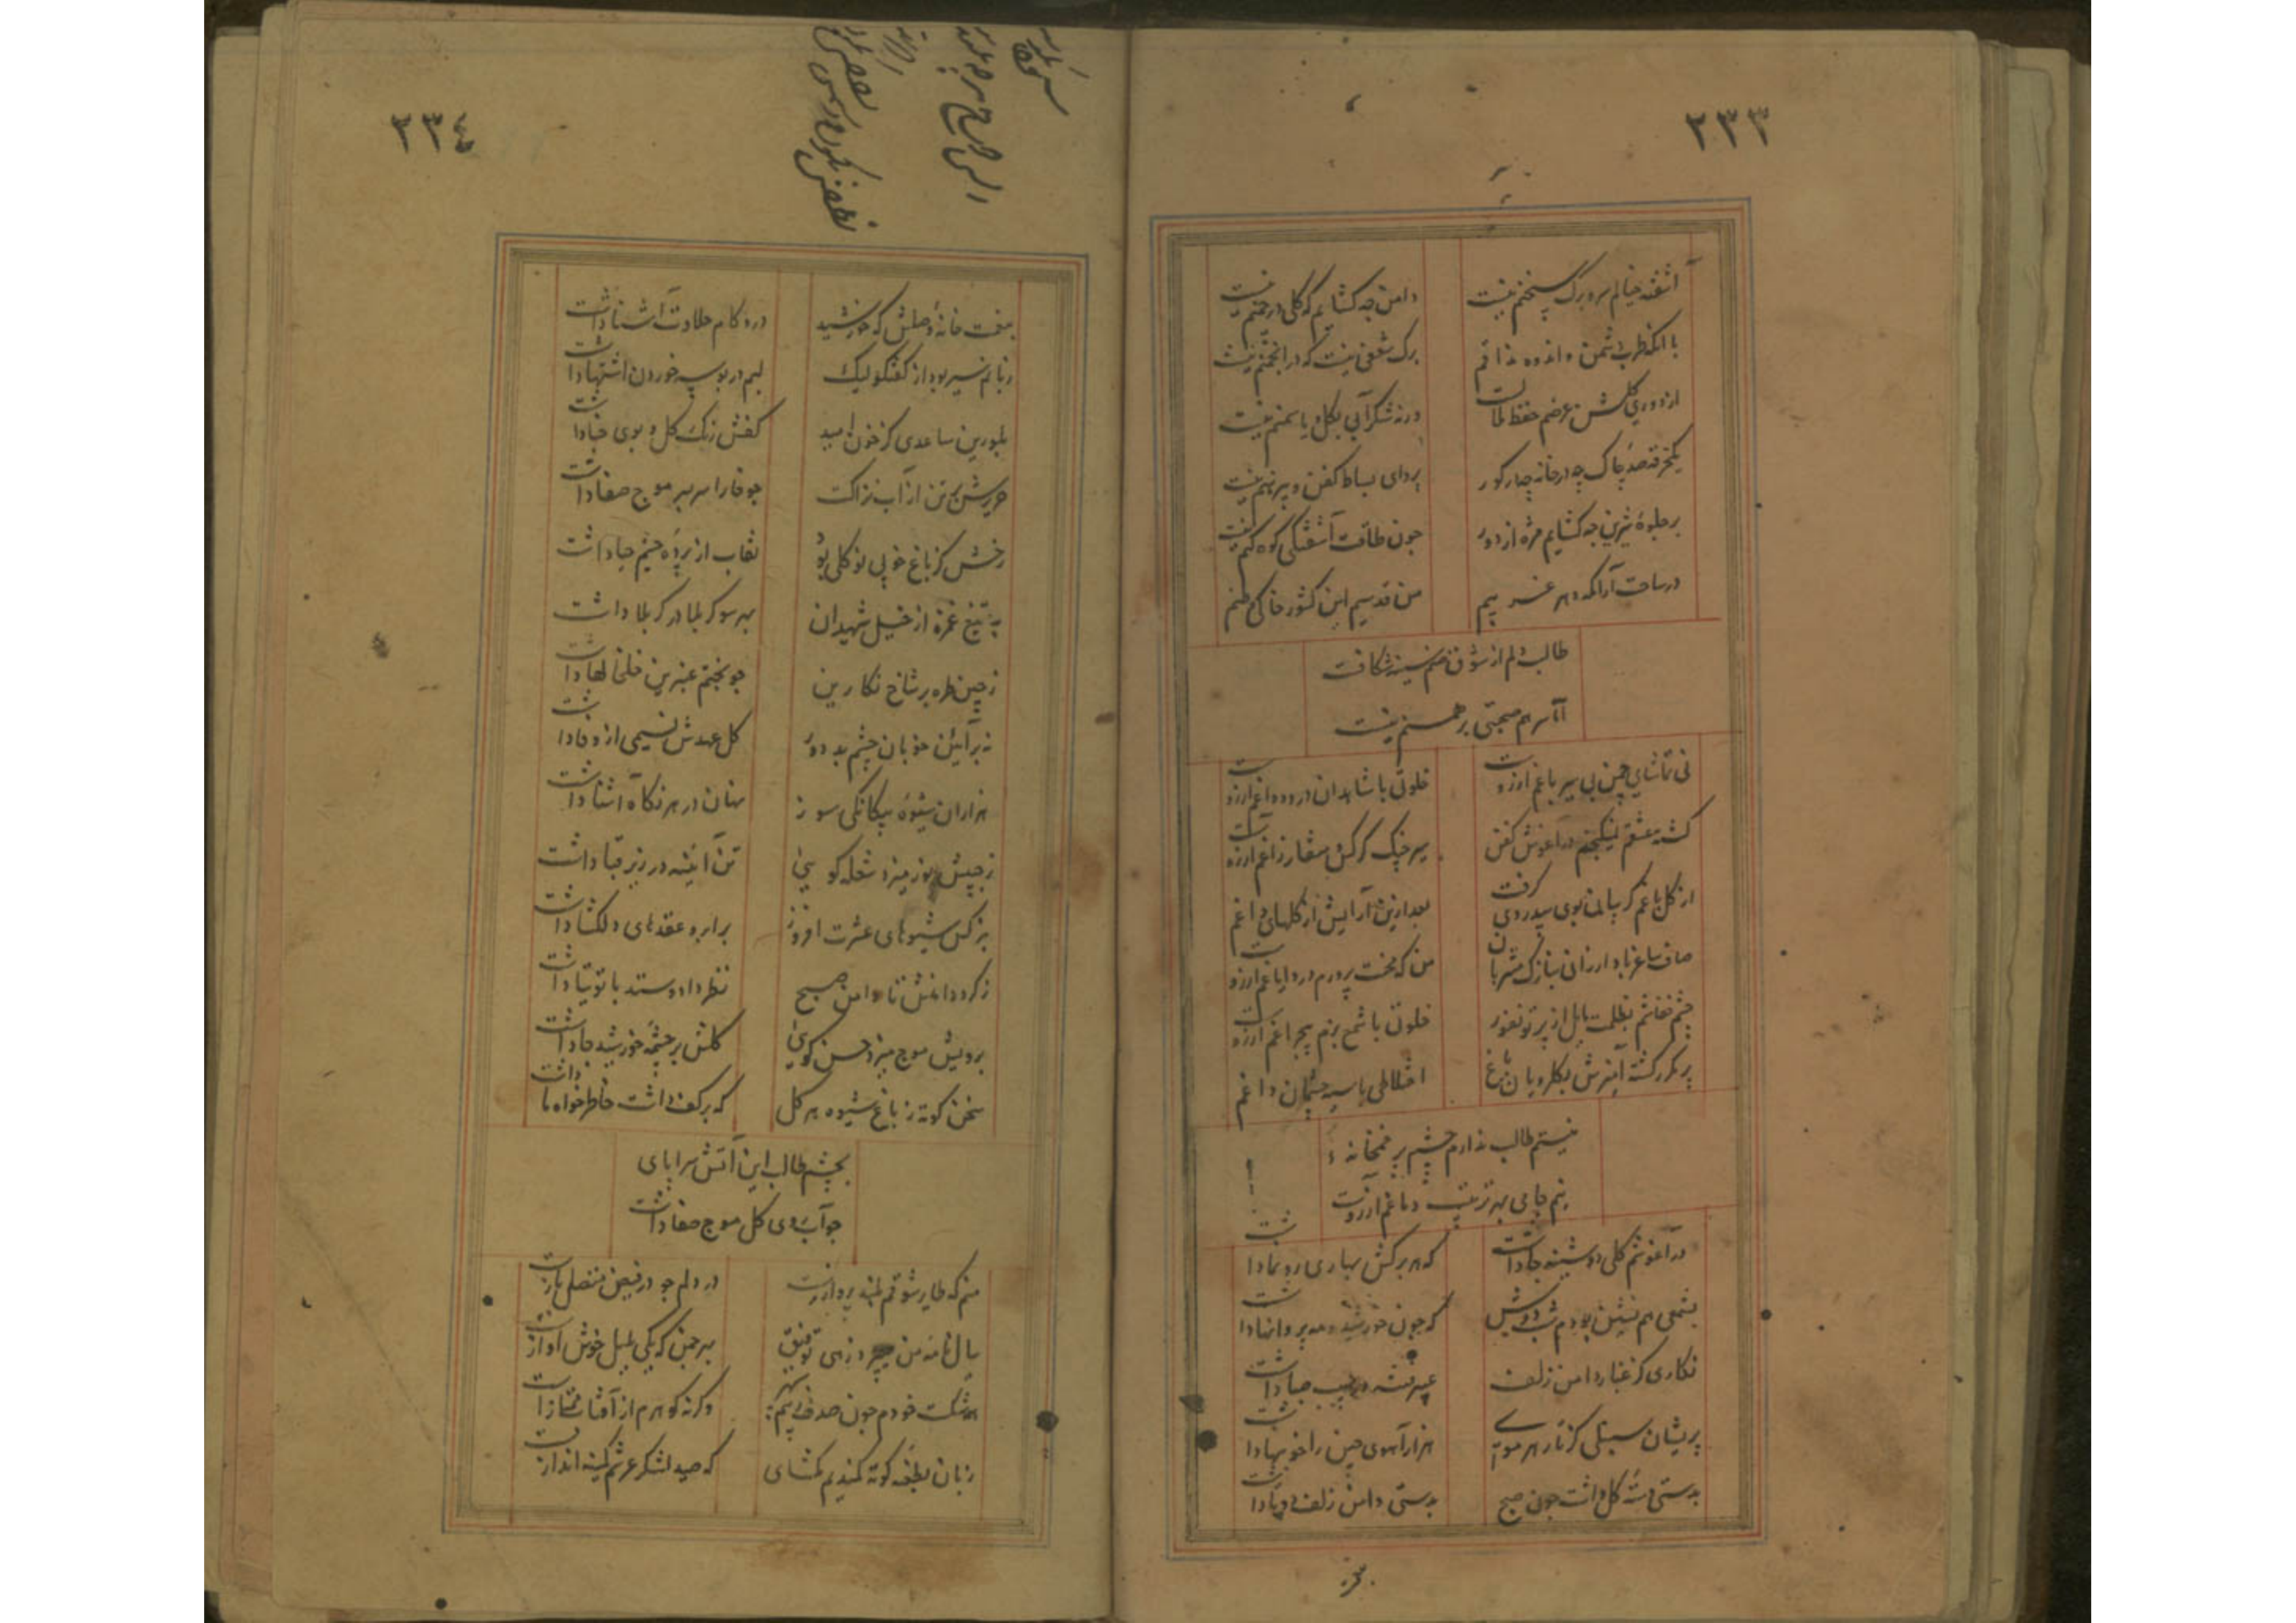 ۲۳۳
آشفته خیالم سر و برگ سخنم نیست
دامن چه کشایم که گلی در چمنم نیست
با آنکه طرب دشمن و اندوه مذاقم
برک شعفی نیست که در انجمنم نیست
از دوری گلشن غرضم حفظ
ورنه شکرآبی بگل و یاسمنم نیست
یکخرقه صد چاک چه در خانه چه در گور
پروای بساط کفن و پیرهنم نیست
بر جلوه شیرین چه کشایم مژه از دور
چون طاقت آشفتگی کوه کنم نیست
در ساحت آرامگه دهر غریبم
من قدسیم این کشور خاکی وطنم
طالب دلم از شوق صنم سینه شکافت
آنا سر هم صحبتی برهمنم نیست
نی تماشای چمن نی سیر باغم آرزوست
خلوتی با شاهدان درد و داغم آرزوست
کشته عشقم نمیکنجم در آغوش کفن
سیر چنگ کرکس و منقار زاغم آرزوست
از گل باغم گریبان بوی بیدردی گرفت
بعد ازین آرایش از گلهای داغم
صاف ساغر باد ارزانی بنازک مشربان
من که محنت پرورم درد ایاغم آرزوست
چشم خفاشم بظلمت مایل از پرتو نفور
خلوتی با شمع بزم بیچراغم آرزوست
پر مکرر گشته آمیزش بگلرویان باغ
اختلاطی با سیه چشمان داغم
نیستم طالب ندارم چشم بر خمخانه
نیم جامی بهر ترتیب دماغم آرزوست
در آغوشم گلی دوشینه جا داشت
که هر برگش بهاری رونما داشت
بشمعی هم نشین بودم شب دوش
که چون خورشید و مه پروانها داشت
نگاری کز غبار دامن زلف
عبیر فتنه در جیب صبا داشت
پریشان سنبلی کز تار هر موی
هزار آهوی چین را خونبها داشت
بدستی دسته گل داشت چون صبح
بدستی دامن زلف دوتا داشت
۲۳٤
بنعمت خانه وصلش که خورشید
درو کام حلاوت آشنا داشت
زبانم سیر بود از گفتگو لیک
لبم در بوسه خوردن اشتها داشت
بلورین ساعدی کز خون امید
کفش رنگ گل و بوی حنا داشت
حریرش تن از آب نزاکت
چو خارا سر بسر موج صفا داشت
رخش کز باغ خوبی نو گلی بود
نقاب از پرده چشم حیا داشت
به تیغ غمزه از خیل شهیدان
بهر سو کربلا در کربلا داشت
ز چین طره بر شاخ نگارین
چو بختم عنبرین خلخالها داشت
نه بر آیین خوبان چشم بد دور
گل عهدش نسیمی از وفا داشت
هزاران شیوه بیگانگی سوز
نهان در هر نگاه آشنا داشت
ز جیبش نور میزد شعله گویی
تن آئینه در زیر قبا داشت
به نرگس شیوهای عشرت افروز
بر ابرو عقدهای دلکشا داشت
ز گرد دامنش تا دامن صبح
نظر داد و ستد با توتیا داشت
برویش موج میزد حسن گویی
گلش بر چشمه خورشید جا داشت
سخن کوته ز باغ شیوه هر گل
که بر کف داشت خاطرخواه ما داشت
بچشم طالب این آتش سراپای
چو آب روی گل موج صفا داشت
منم که طایر شوقم بلند پروازست
در دلم چو در فیض متصل بازست
بال نامه من زهی توفیق
بهر چمن که یکی بلبل خوش آوازست
شکست خودم چون صدف
وگرنه گوهرم از آفتاب ممتازست
زبان بطعنه کوته کمندیم مکشای
که صید لشکر عرشم کمینه اندازست